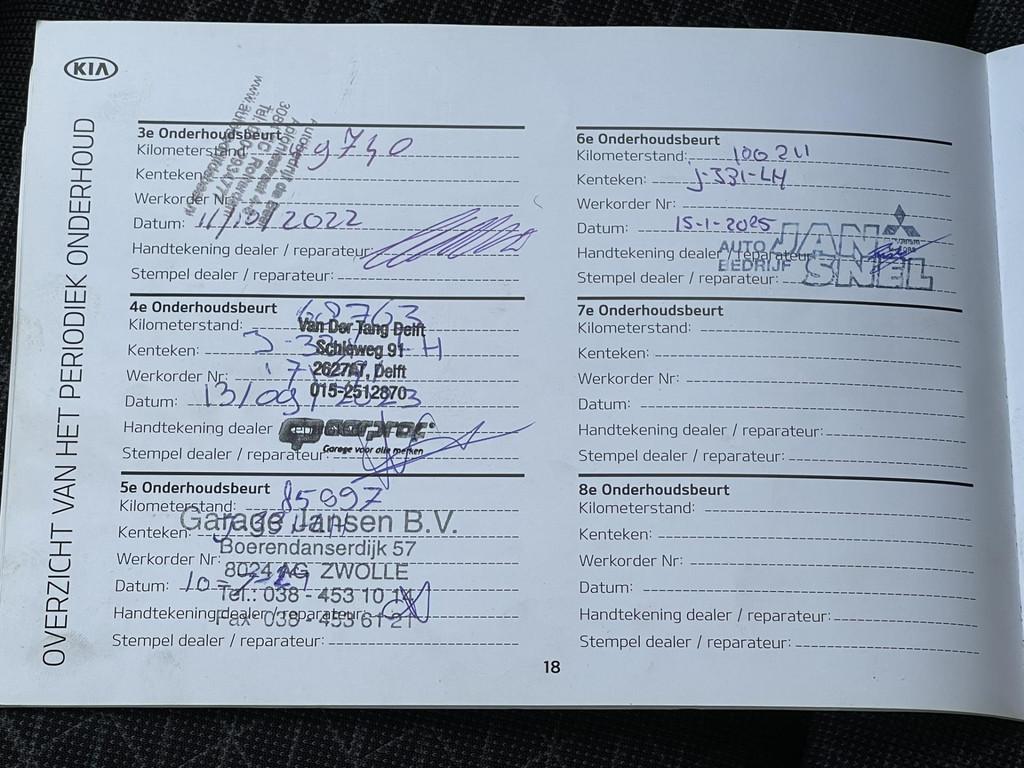 KIA
OVERZICHT VAN HET PERIODIEK ONDERHOUD
3e Onderhoudsbeurt
Kilometerstand: 9740
Kenteken:
Werkorder Nr:
Datum: 11/10/2022
Handtekening dealer / reparateur:
Stempel dealer / reparateur:
4e Onderhoudsbeurt
Kilometerstand: 68763
Van Der Tang Delft
Kenteken: J-331-LH
Schieweg 91
Werkorder Nr:
2627AT, Delft
Datum: 13/09/2023
015-2512870
Handtekening dealer
Garage voor alle merken
Stempel dealer / reparateur:
5e Onderhoudsbeurt
Kilometerstand: 85097
Garage Jansen B.V.
Kenteken: J-331-LH
Boerendanserdijk 57
Werkorder Nr:
8024 AG ZWOLLE
Datum: 10-7-24
Tel.: 038 - 453 10 14
Handtekening dealer / reparateur:
Fax 038 - 453 61 21
Stempel dealer / reparateur:
6e Onderhoudsbeurt
Kilometerstand: 100211
Kenteken: J-331-LH
Werkorder Nr:
Datum: 15-1-2025
AUTO JAN
Handtekening dealer / reparateur
BEDRIJF SNEL
Stempel dealer / reparateur:
7e Onderhoudsbeurt
Kilometerstand:
Kenteken:
Werkorder Nr:
Datum:
Handtekening dealer / reparateur:
Stempel dealer / reparateur:
8e Onderhoudsbeurt
Kilometerstand:
Kenteken:
Werkorder Nr:
Datum:
Handtekening dealer / reparateur:
Stempel dealer / reparateur:
18